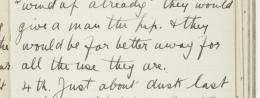 wind up already" they would
give a man the pip. & they
would be far better away for
all the use they are.
4th. Just about dusk last